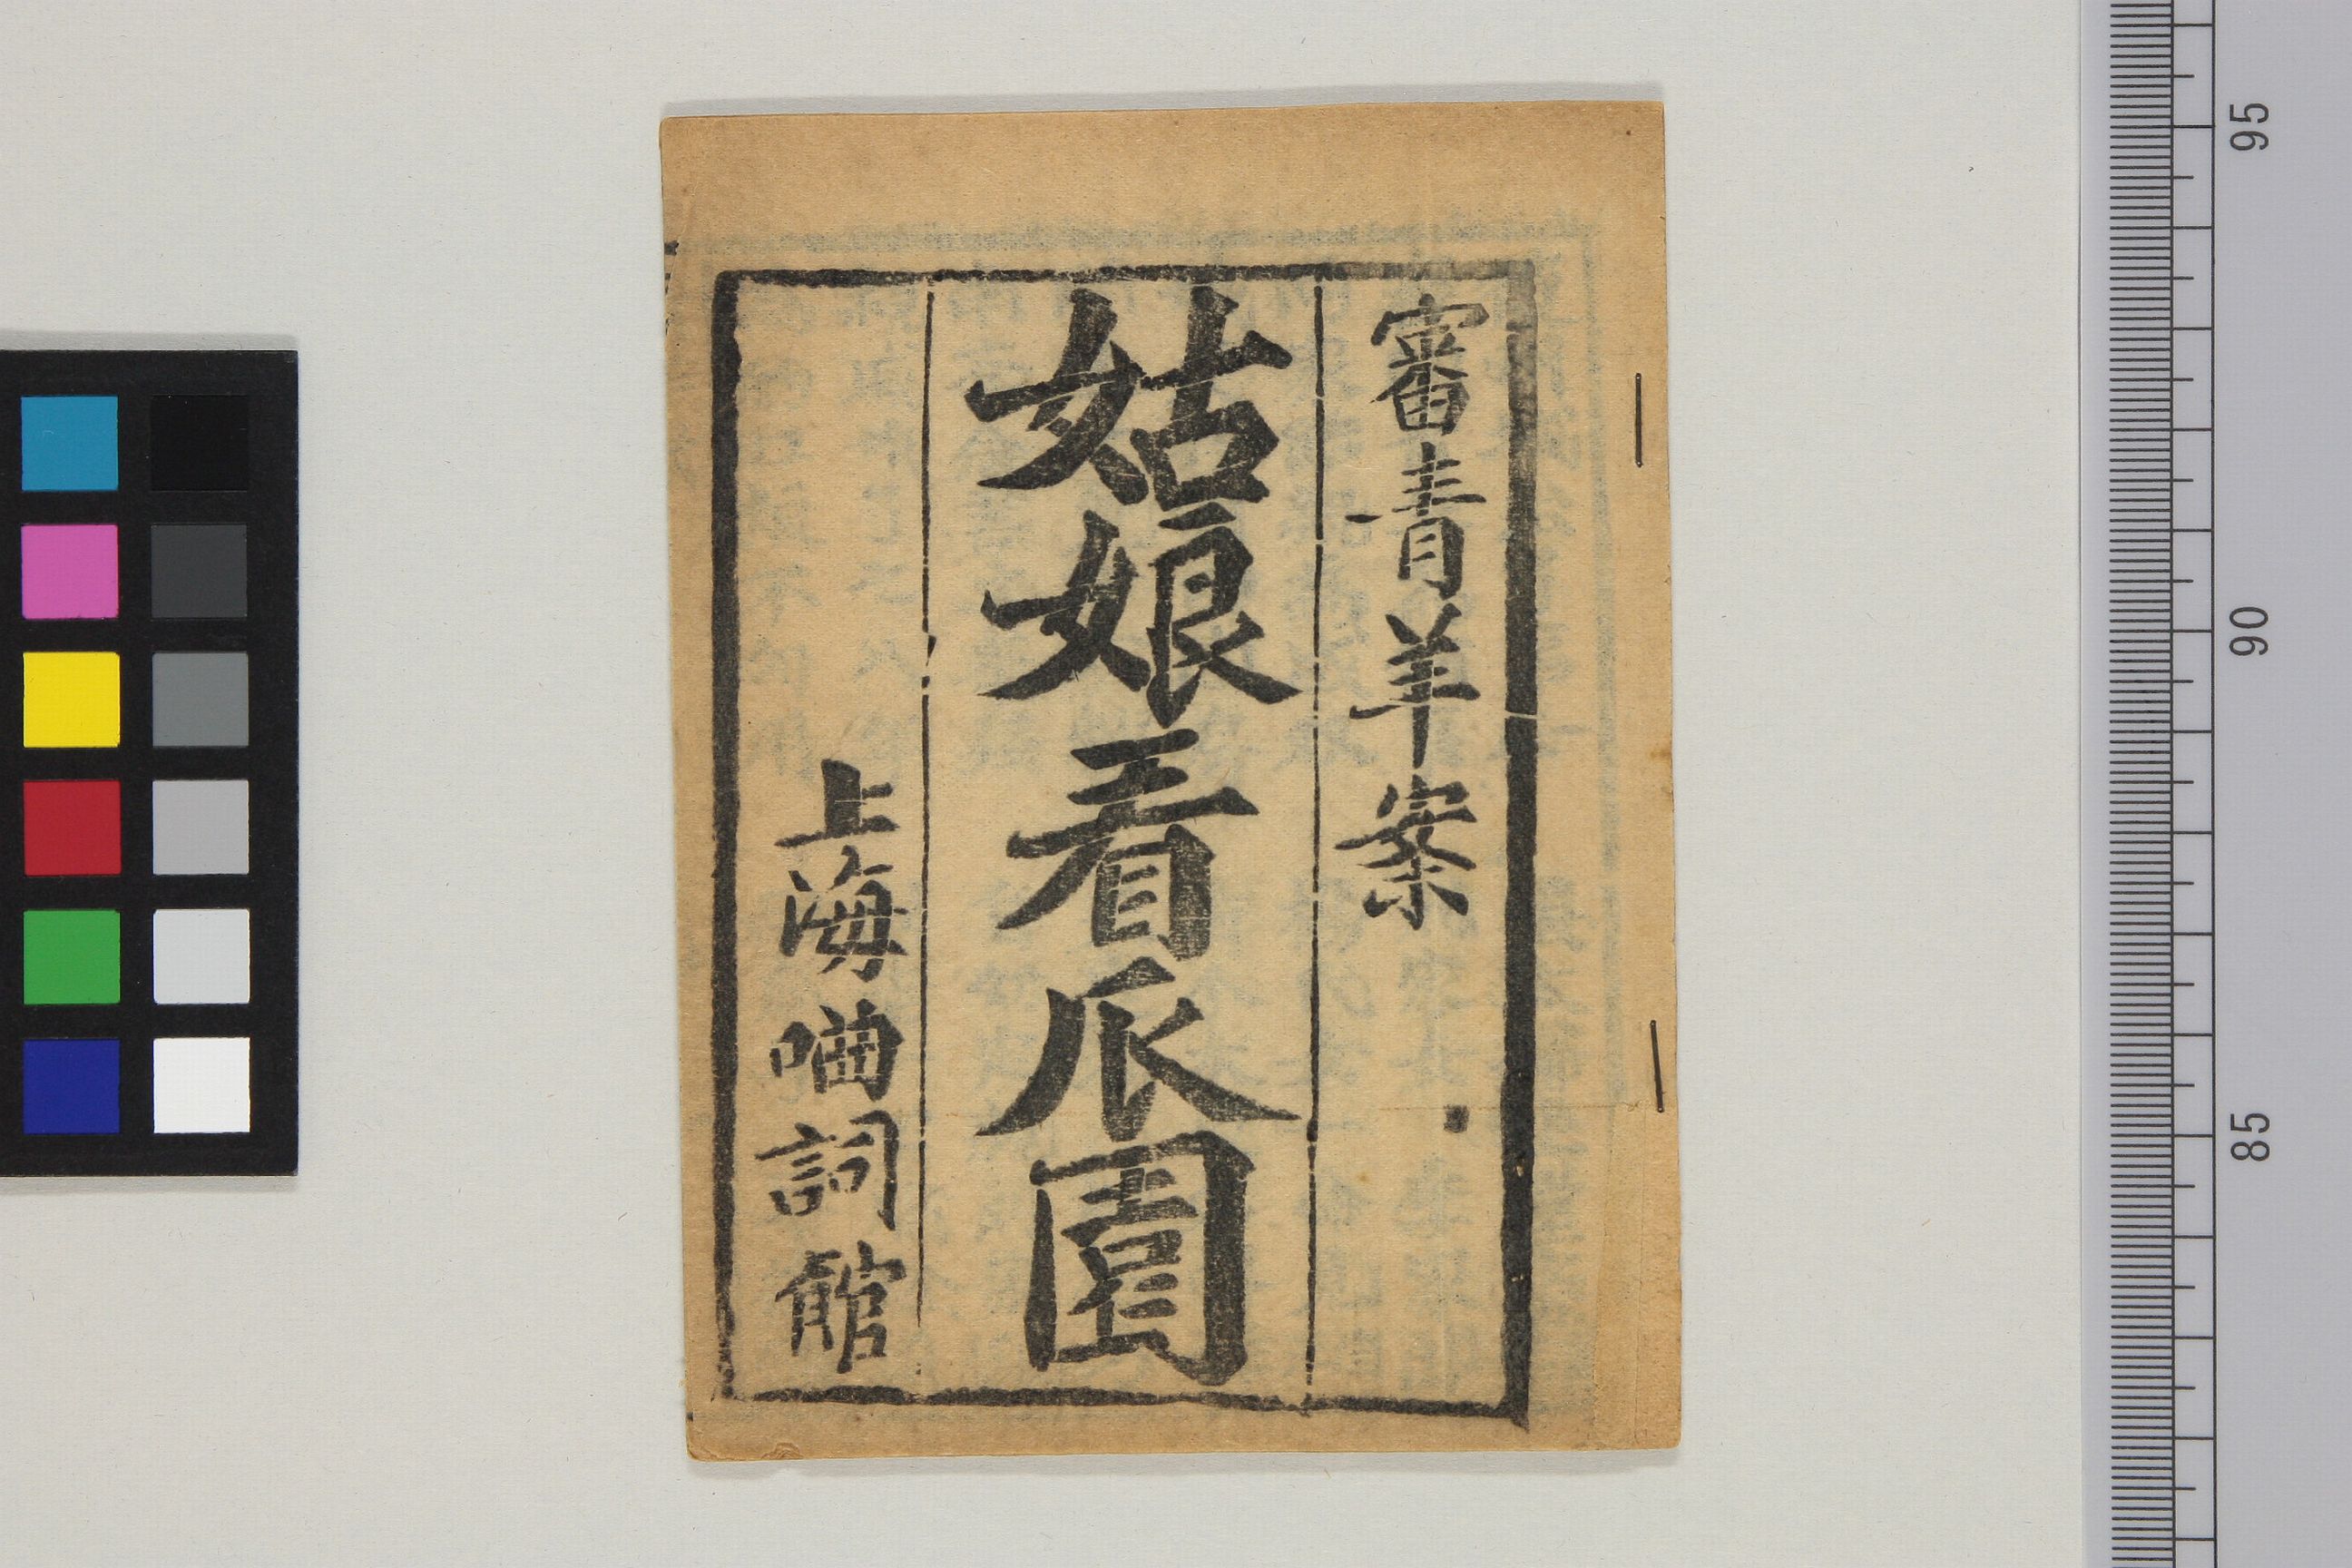 審青羊案
姑娘看瓜園
上海唒詞館
95
90
85